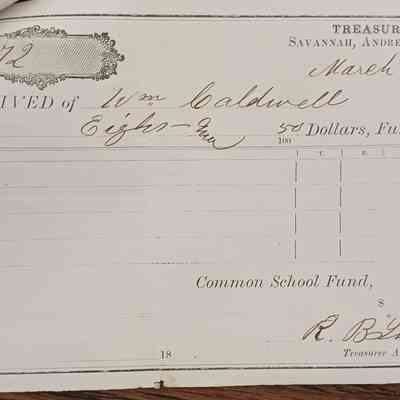 TREASUR
72
SAVANNAH, ANDRE
March
IVED of Wm Caldwell
Eight 50/100 Dollars, Fu
T. R.
Common School Fund,
$
R. B
18
Treasurer A